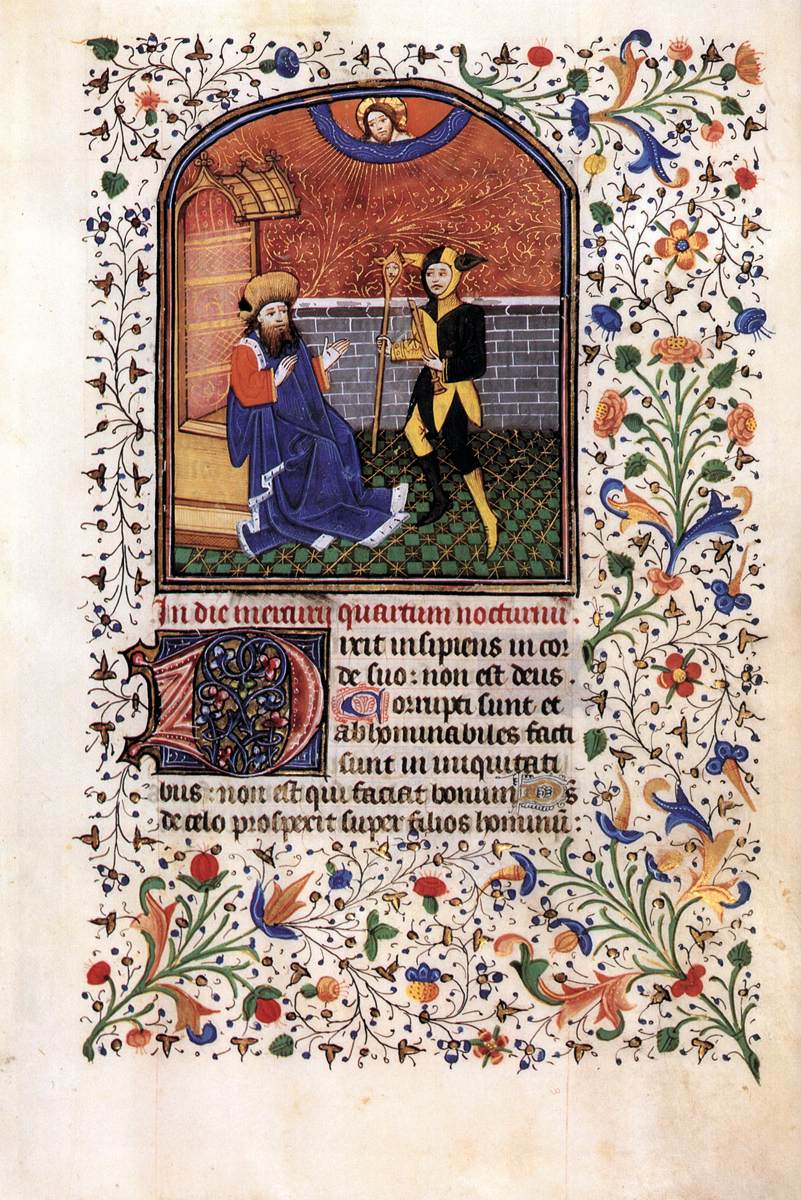 In die mercurij quartum nocturnu.
Dixit insipiens in cor
de suo: non est deus.
Corrupti sunt et
abhominabiles facti
sunt in iniquitati
bus: non est qui faciat bonum Ds
de celo prospexit super filios hominū: